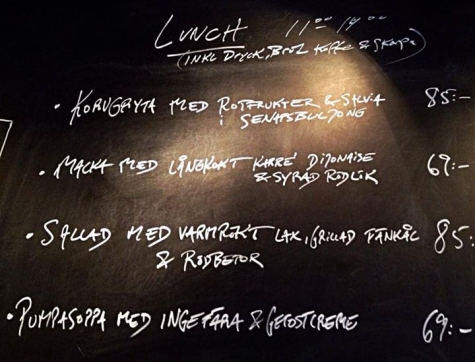 LUNCH 11:00 14:00
(INKL DRYCK, BRÖD, KAFFE & SKORPA)
• KORVGRYTA MED ROTFRUKTER & SALVIA 85:-
I SENAPSBULJONG
• MACKA MED LÅNGKOKT KARRÉ DIJONAISE 69:-
& SYRAD RÖDLÖK
• SALLAD MED VARMRÖKT LAX, GRILLAD FÄNKÅL 85:-
& RÖDBETOR
• PUMPASOPPA MED INGEFÄRA & GETOSTCREME 69:-